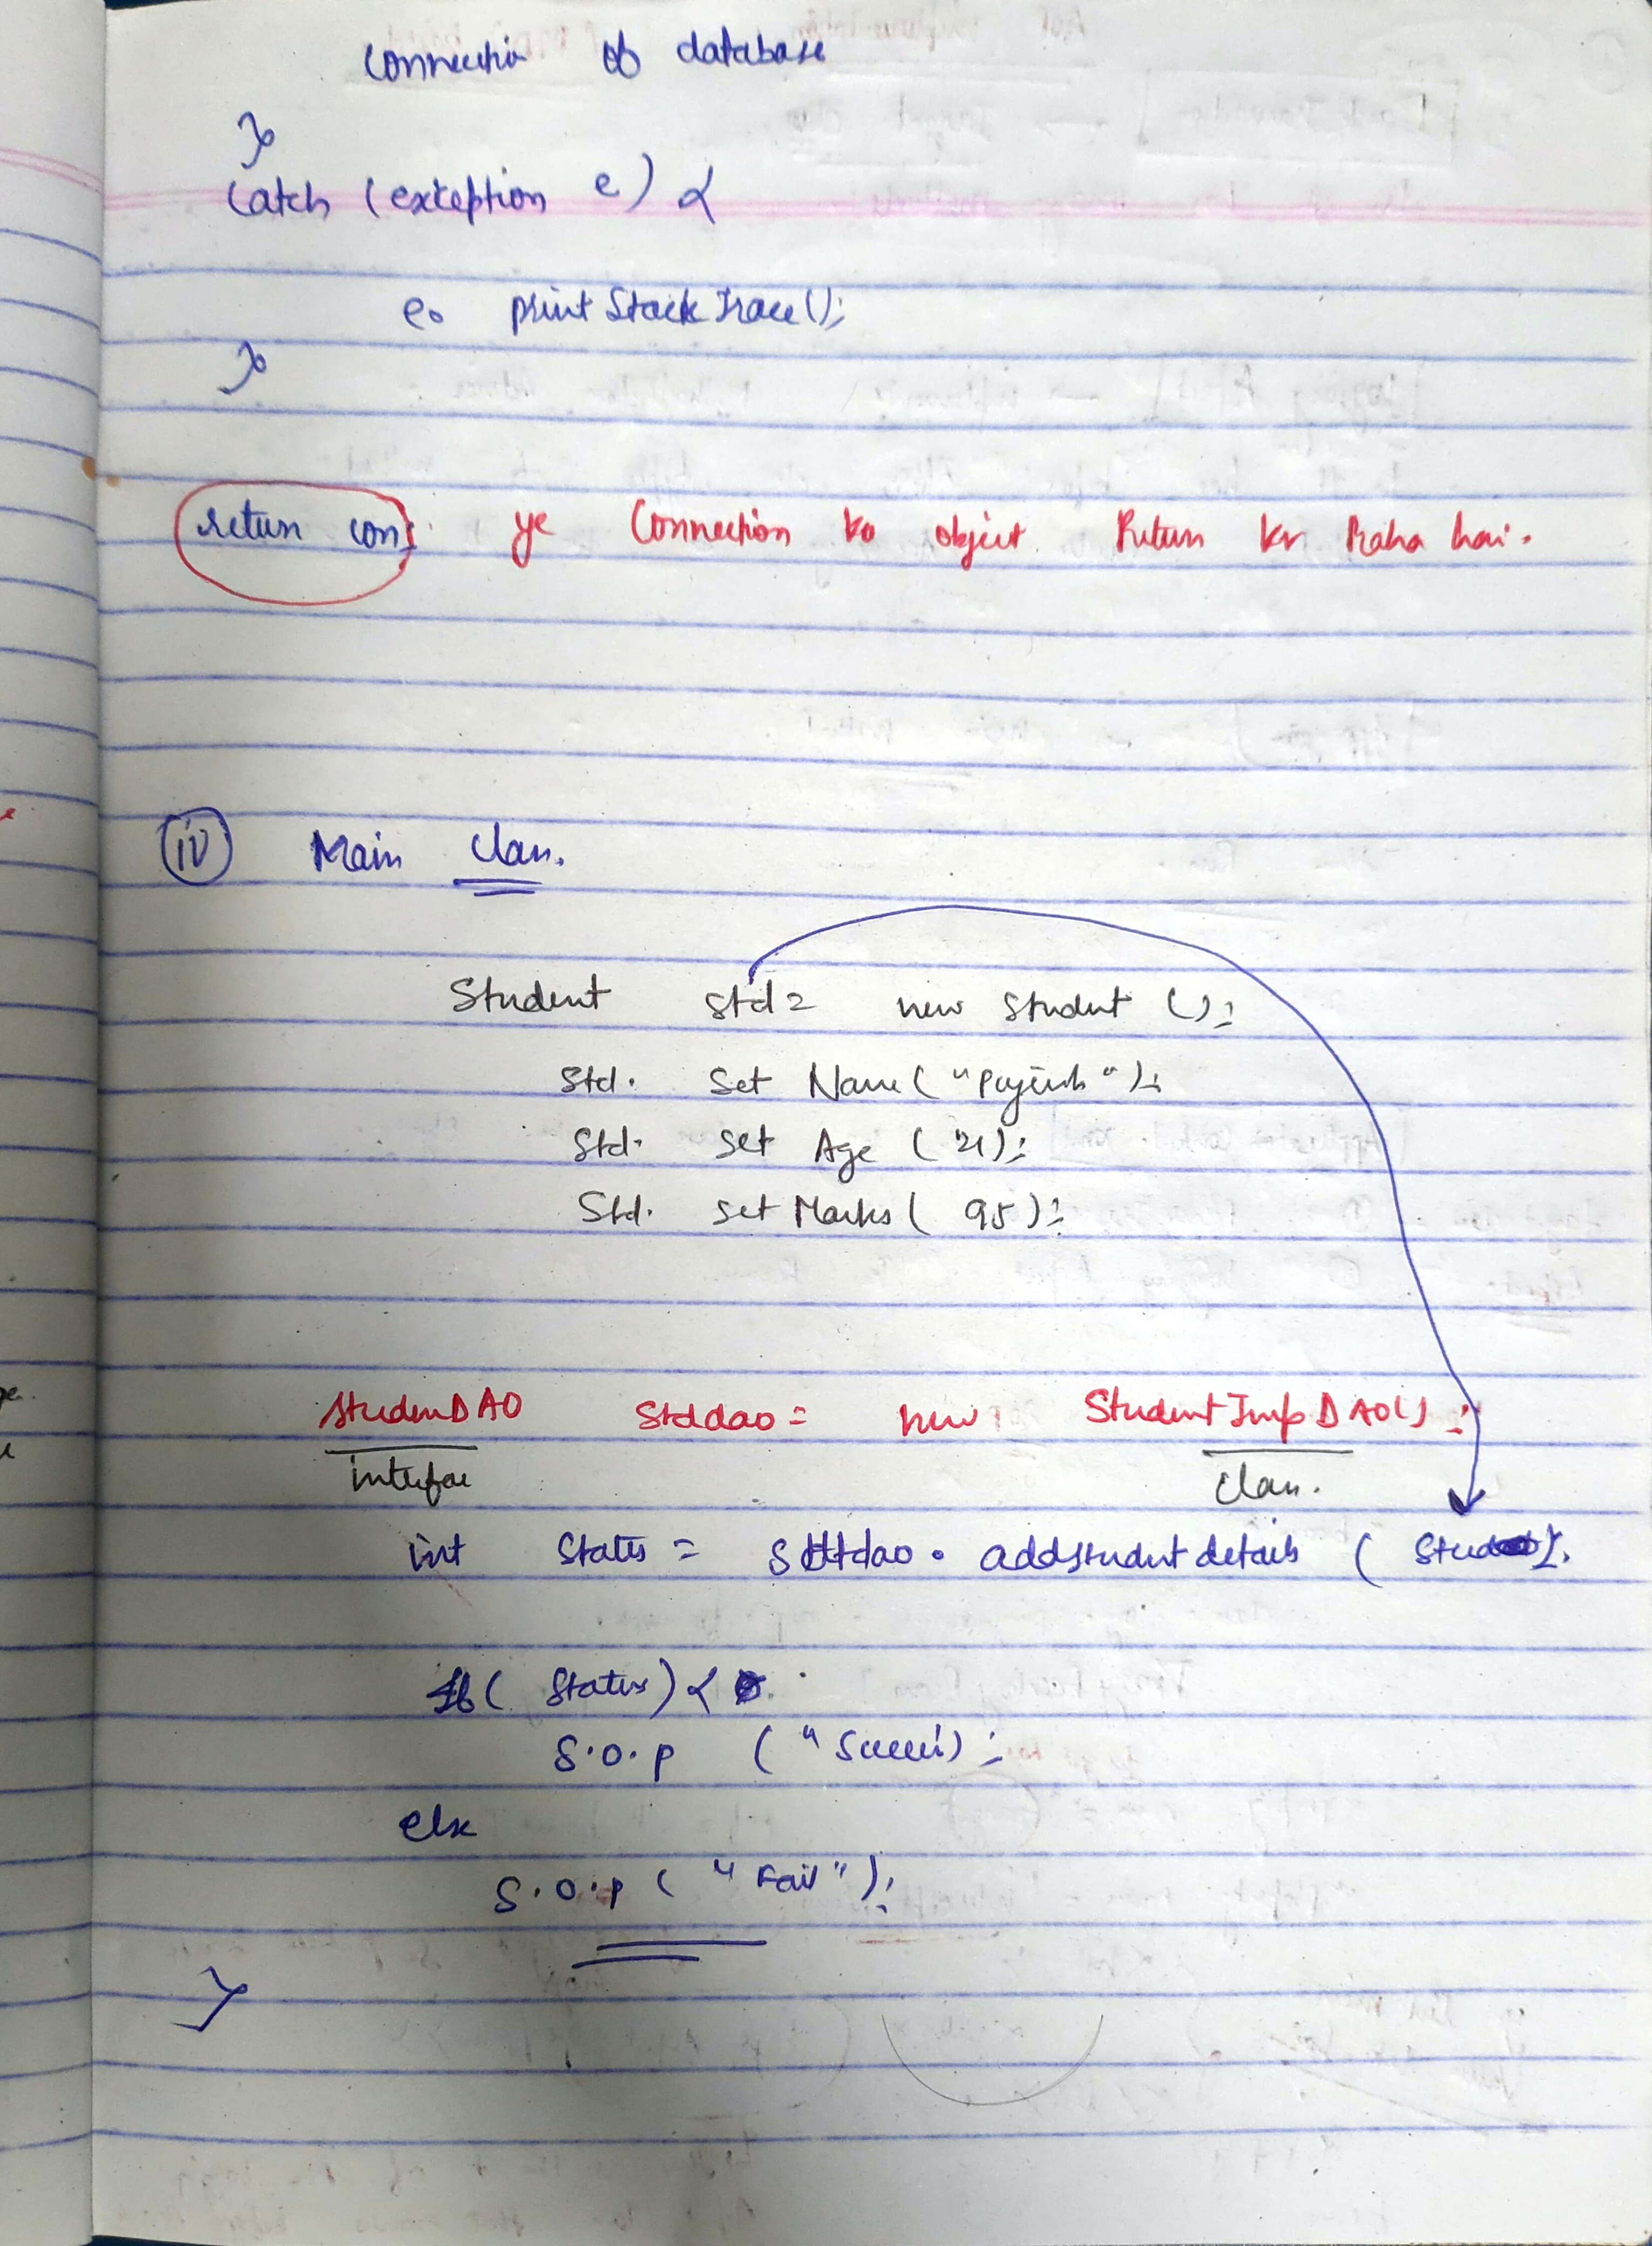 connection of database
}
catch (exception e) {
e. printStackTrace();
}
return con; ye Connection ko object Return kr Raha hai.
(iv) Main Class.
Student std = new Student ();
Std. Set Name(" ");
Std. Set Age (21);
Std. Set Marks( 95);
StudenDAO Stddao = new StudentImpDAO();
interface class.
int Status = stddao. addstudentdetails ( Std);
If( Status) {
S.O.P ("Success);
else
S.O.P( "Fail");
}